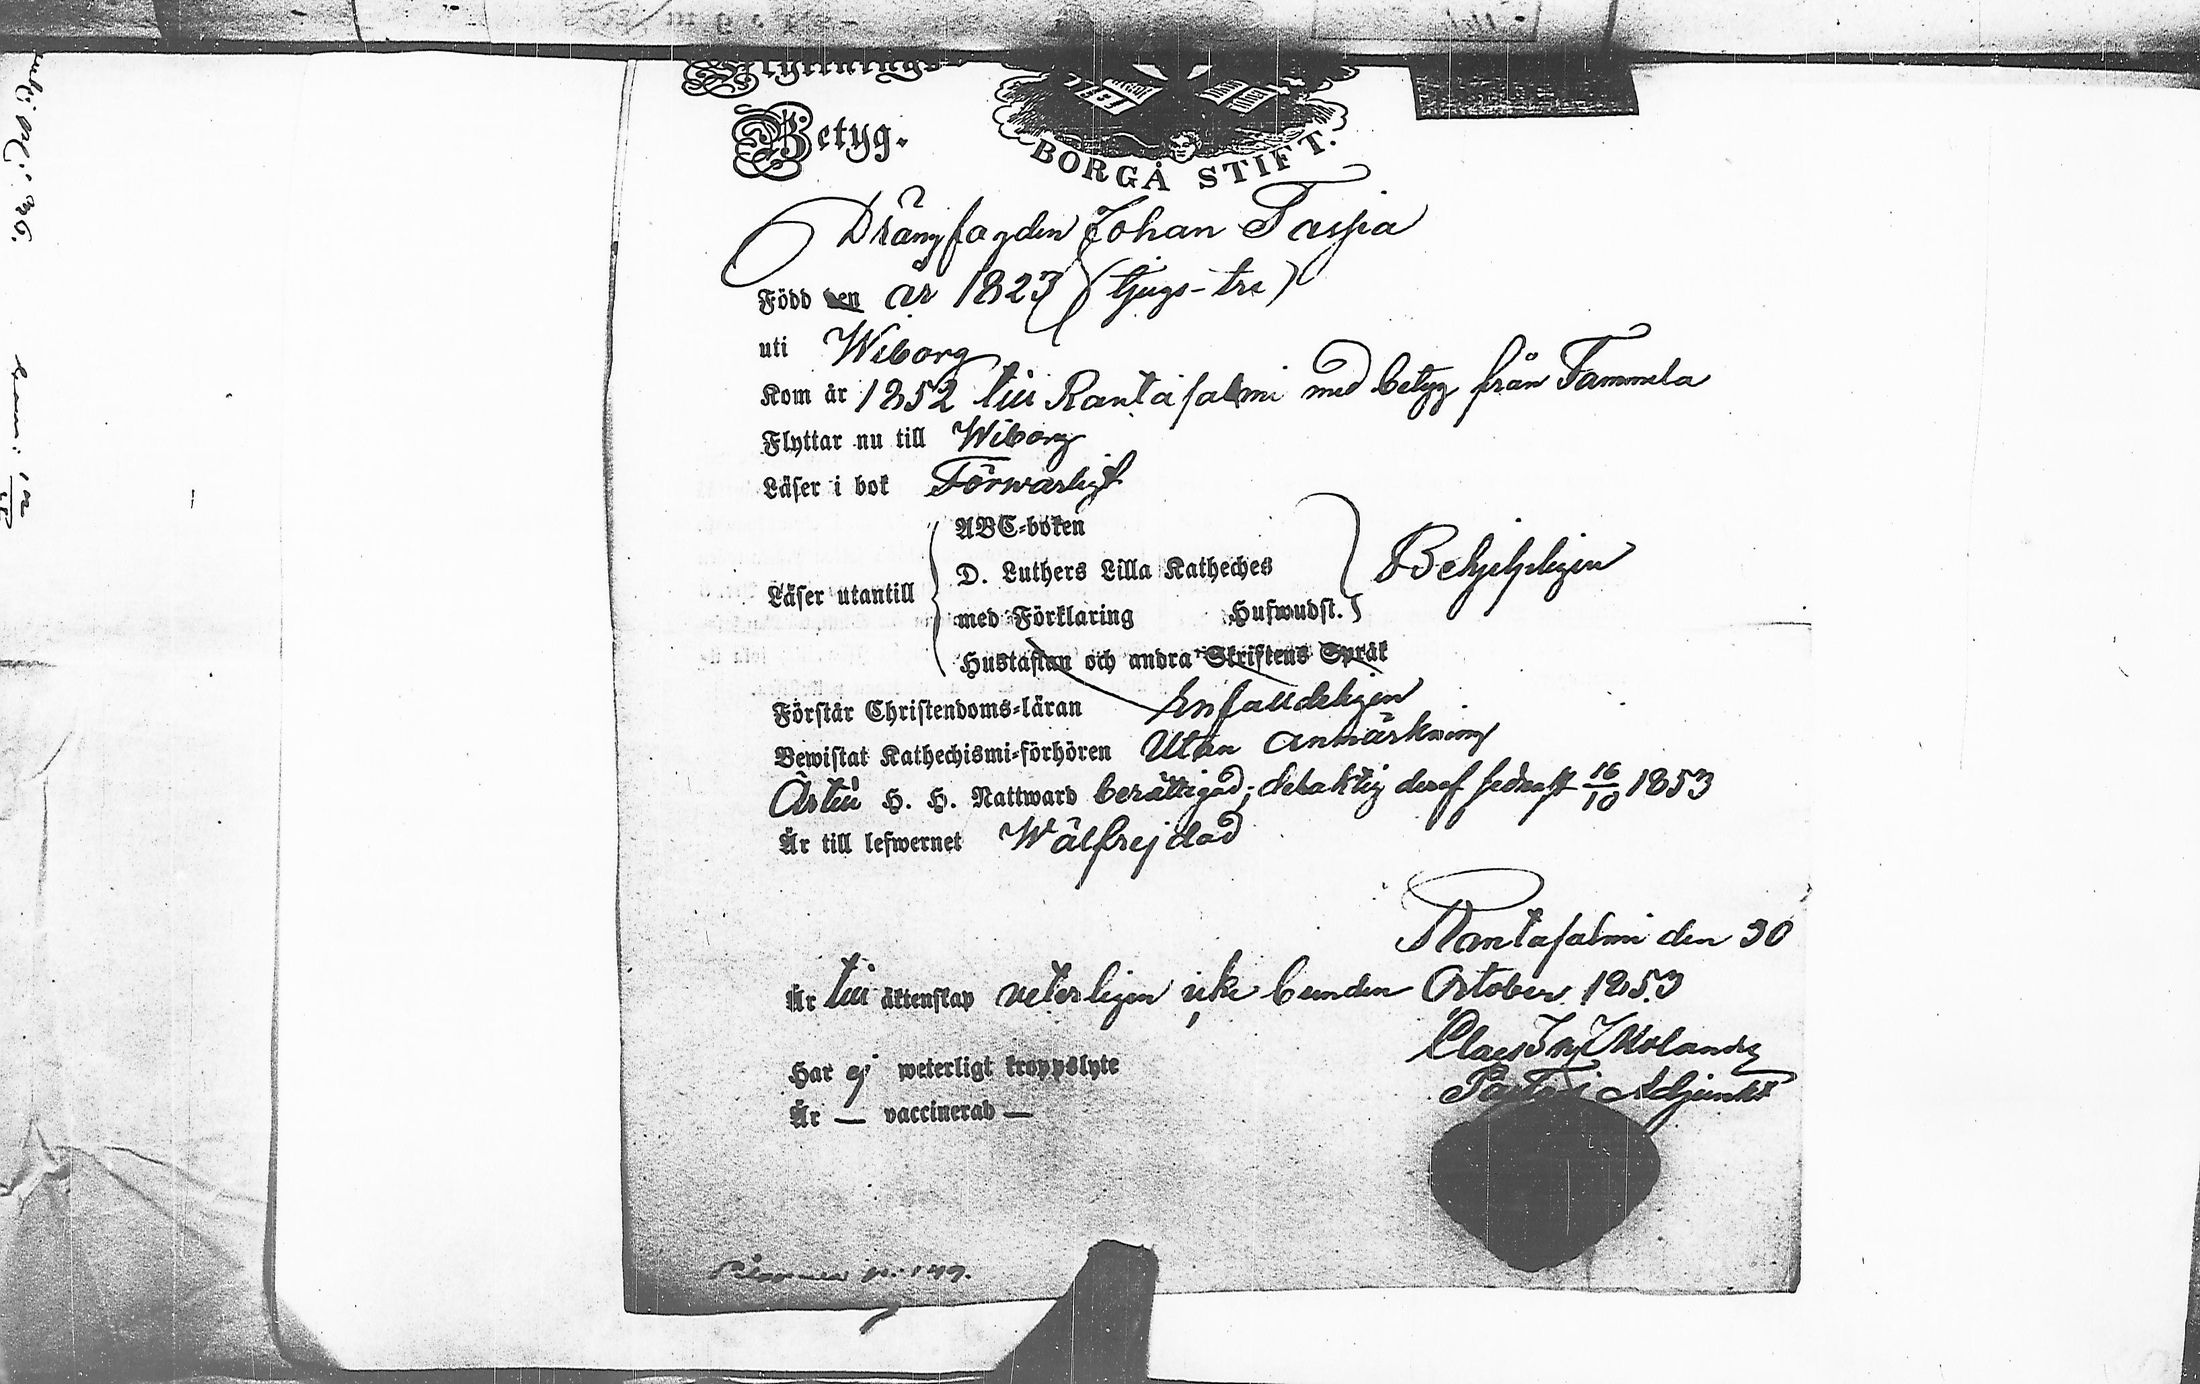 Flyttnings-
Betyg.
BORGÅ STIFT.
Drängfogden Johan
Född den år 1823 (tjugo-tre)
uti Wiborg
Kom år 1852 till Rantasalmi med betyg från Tammela
Flyttar nu till Wiborg
Läser i bok Förswarligt
ABC-boken
D. Luthers Lilla Katheches
Läser utantill
med Förklaring Hufwudst.
Behjelpligen
Hustaflan och andra Skriftens Språk
Förstår Christendoms-läran Enfalldeligen
Bewistat Kathechismi-förhören Utan anmärkning
Är till H. H. Nattward berättigad; delaktig deraf sednast 16/10 1853
Är till lefwernet Wälfrejdad
Rantasalmi den 30
Är till äktenskap veterligen icke bunden October 1853
Claes
Har ej weterligt kroppslyte
Pastors Adjunkt
Är — vaccinerad —